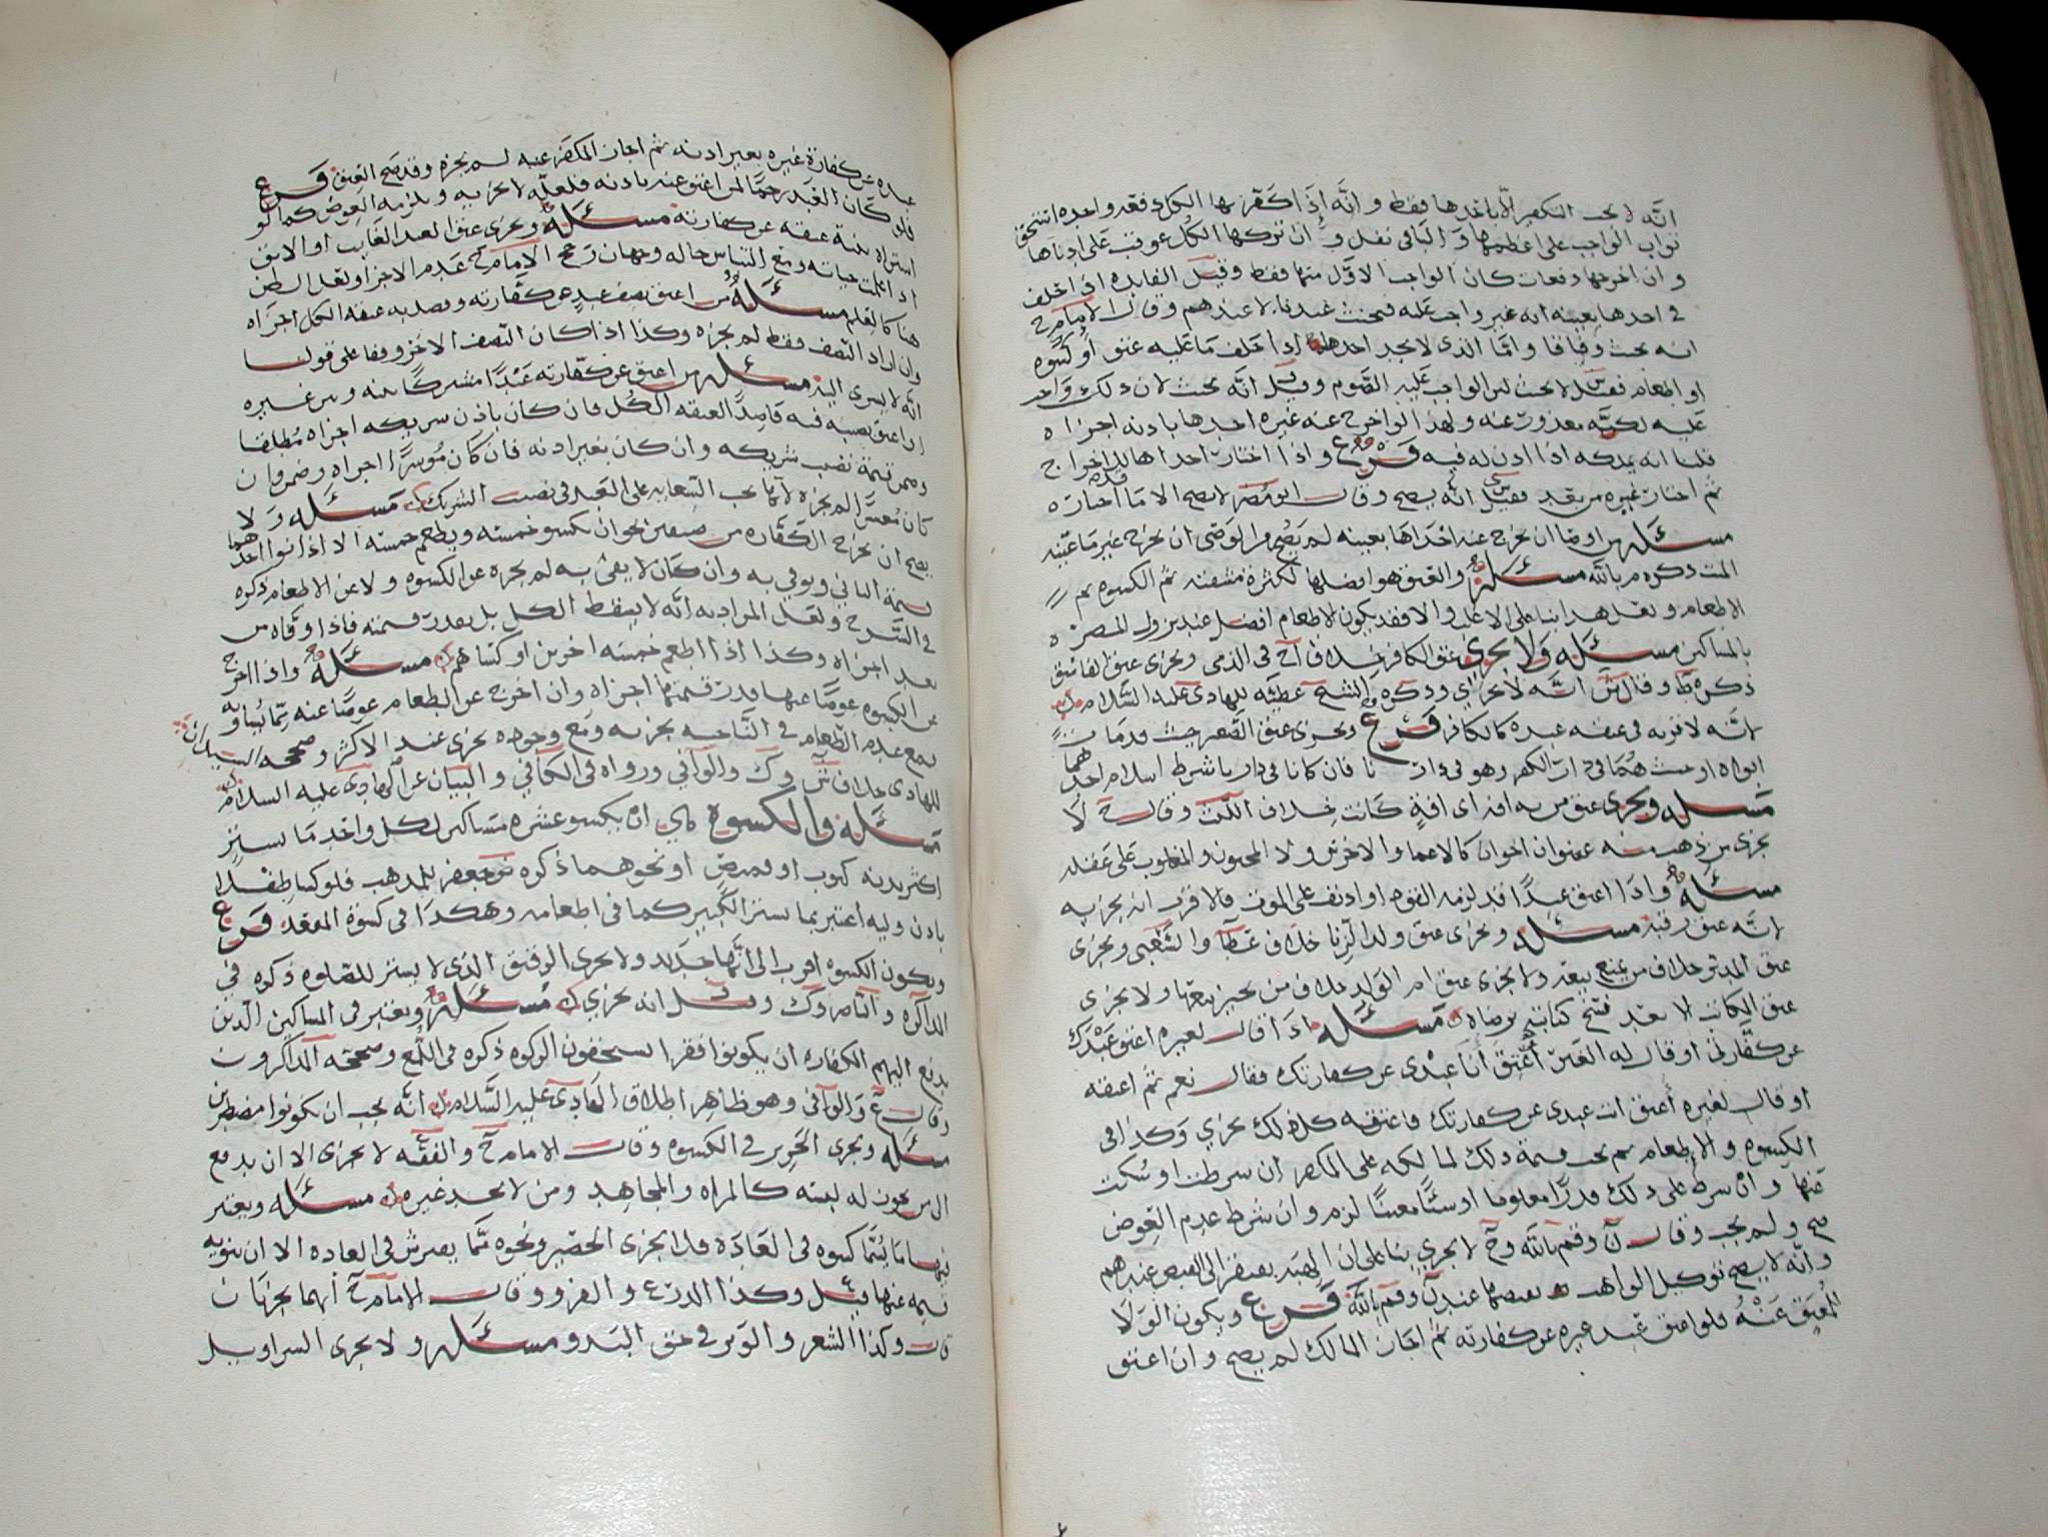 انه لا يجب التكفير الا باحدها فقط وانه اذا كفر بها الكل دفعه واحده استحق
ثواب الواجب على اعظمها والباقي نفل وان تركها الكل عوقب على ادناها
وان اخرجها دفعات كان الواجب الاول منها فقط وقيل الفايده اذا حلف
في احدها بعينه انه غير واجب عليه فيحنث عندنا لا عندهم وقال الامام ح
انه يحنث وفاقا واما الذي لا يجد احدها اذا حلف ما عليه عتق او كسوه
او اطعام فقيل لا يحنث لان الواجب عليه الصوم وقيل انه يحنث لان ذلك واجب
عليه لكنه معذور عنه ولهذا لو اخرج عنه غيره احدها باذنه اجزاه
قلنا انه يملكه اذا اذن له فيه فرع واذا اختار احداها للاخراج
ثم اختار غيره من بعد فقيل انه يصح وقال ابو مضر لا يصح الا ما اختاره
مسئله من اوصى ان يخرج عنه احداها بعينه لم يصح من الوصي ان يخرج غير ما عينه
الميت ذكره م بالله مسئله والعتق هو افضلها لكثرة مشقته ثم الكسوه ثم
الاطعام ولعل هذا بناء على الاغلب والا فقد يكون الاطعام افضل عند نزول المضره
بالمساكين مسئله ولا يجزي عتق الكافر خلاف ح في الذمي ويجزي عتق الفاسق
ذكره ط وقال ش انه لا يجزي وذكره الشيخ عطيه للهادي عليه السلام
لانه لا قربه في عتقه عبده كالكافر فرع ويجزي عتق الصغير حيث قد مات
ابواه او حيث هما في دار الكفر وهو في دارنا فان كانا في دارنا شرط اسلام احدهما
مسئله ويجزي عتق من به افه اي افةٍ كانت خلاف الليث وقال ح لا
يجزي من ذهب منه عضوان اخوان كالاعما والاخرس ولا المجنون والمغلوب على عقله
مسئله واذا اعتق عبدًا قد لزمه القود او اذنف على الموت فالاقرب انه يجزيه
لانه عتق رقبه مسئله ويجزي عتق ولد الزنا خلاف عطا والشعبي ويجزي
عتق المدبر خلاف من يمنع بيعه ولا يجزي عتق ام الولد خلاف من يجيز بيعها ولا يجزي
عتق المكاتب الا بعد فسخ كتابته برضاه مسئله اذا قال لغيره اعتق عبدك
عن كفارتي او قال له الغير أعتق أنا عبدي عن كفارتك فقال نعم ثم اعتقه
او قال لغيره أعتق انت عبدي عن كفارتك فاعتقه كل ذلك يجزي وكذا في
الكسوه والاطعام ثم يجب قيمة ذلك لمالكه على المكفر ان شرطت او سكت
عنها وان شرط على ذلك قدرًا معلوما او شيًا معينًا لزم وان شرط عدم العوض
صح ولم يجب وقال ن وقم بالله وح لا يجزي بنا على ان الهبه يفتقر الى القبض عندهم
وانه لا يصح توكيل الواهب بقبضها عند ن وقم بالله فرع ويكون الولا
للمعتق عنهُ فلو اعتق عبد غيره عن كفارته ثم اجاز المالك لم يصح وان اعتق
عبده عن كفارة غيره بغير اذنه ثم اجاز المكفر عنه لم يجزه وقد صح العتق فرع
فلو كان العبد رحمًا لمن اعتق عنه باذنه فلعله لا يجزيه ويلزمه العوض كما لو
اشتراه بنية عتقه عن كفارته مسئله ويجزي عتق العبد الغايب او الابق
اذا علمت حياته ومع التباس حاله وجهان رجح الامام ح عدم الاجزا ولعل الظن
هنا كالعلم مسئله من اعتق نصف عبدٍ عن كفارته وقصد به عتقه الكل اجزاه
وان اراد النصف فقط لم يجزه وكذا اذا كان النصف الاخر وقفا على قولنا
انه لا يسري اليه مسئله من اعتق عن كفارته عَبْدًا مشتركًا بينه وبين غيره
او اعتق نصيبه فيه قاصدًا لعتقه الكُل فان كان باذن شريكه اجزاه مُطلقا
وضمن قيمة نصيب شريكه وان كان بغير اذنه فان كان مُوسرًا اجزاه وضمن وان
كان مُعسرًا لم يجزه لانها تجب السعايه على العبد في نصيب الشريك مسئله ولا
يصح ان يخرج الكفاره من صنفين نحو ان يكسو خمسته ويطعم خمسته الا اذا نوا احدهما
قيمة الثاني ويوفي به وان كان لا يفي به لم يجزه عن الكسوه ولا عن الاطعام ذكره
في الشرح ولعل المراد به انه لا يسقط الكل بل بقدر قيمته فاذا وفاه من
بعد اجزاه وكذا اذا اطعم خمسه اخرين او كساهم مسئله واذا اخرج
عن الكسوه عوضًا عنها قدر قيمتها اجزاه وان اخرج عن الطعام عوضًا عنه مما يُساويه
فمع عدم الطعام في الناحيه يجزيه ومع وجوده يجزي عند الاكثر وصححه السيدان
للهادي خلاف ش وك والوافي ورواه في الكافي والبيان عن الهادي عليه السلام
مسئله والكسوه هي ان يكسو عشره مساكين لكل واحدٍ ما يستر
اكثر بدنه كثوب او قميص او نحوهما ذكره ابو جعفر للمذهب فلو كسا طفلا
باذن وليه اعتبر بما يستر الكبير كما في اطعامه وهكذا في كسوة المقعد فرع
ويكون الكسوه اقرب الى انها جديد ولا يجزي الرقيق الذي لا يستر للصلوه ذكره في
المذاكره و الناصر وك وقيل انه يجزي مسئله ويعتبر في المساكين الذين
يدفع اليهم الكفاره ان يكونوا فقرا يستحقون الزكوه ذكره في اللمع وصححه المذاكرون
وقال ع والوافي وهو ظاهر اطلاق الهادي عليه السلام انه يجب ان يكونوا مضطرين
مسئله ويجزي الحرير في الكسوه وقال الامام ح والفقه لا يجزي الا ان يدفع
الى من يجوز له لبسه كالمراه والمجاهد ومن لا يجد غيره مسئله ويعتبر
فيها ما يُسَمَّا كسوه في العادَة فلا يجزي الحصير ونحوه مما يفرش في العاده الا ان ينويه
قيمه عنها قيل وكذا الدرع والفرو وقال الامام ح انهما يجزيان
قال وكذا الشعر والوبر في حق البدو مسئله ولا يجزي السراويل